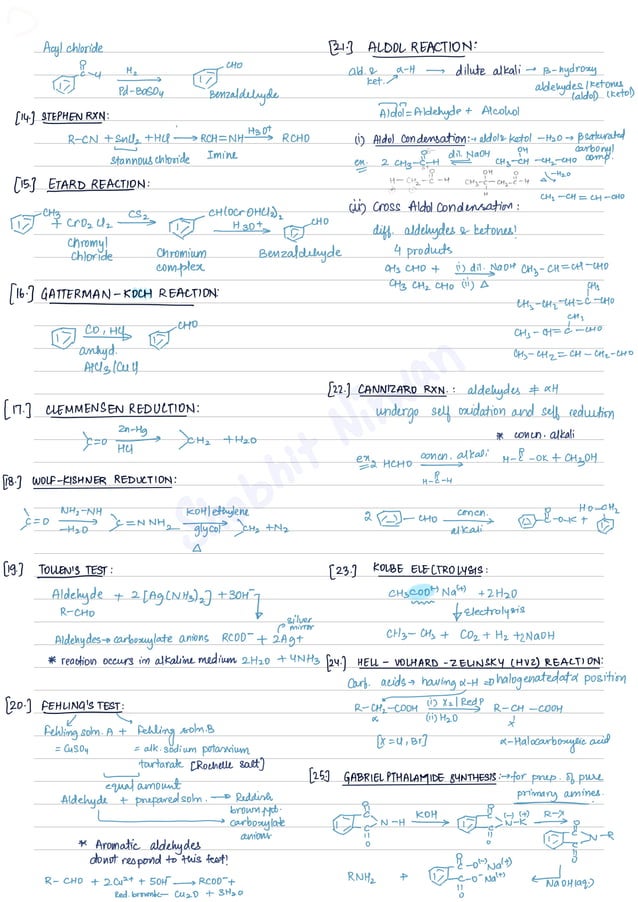 Acyl chloride
O
C-H
H2
Pd-BaSO4
CHO
Benzaldehyde
[14.] STEPHEN RXN:
R-CN + SnCl2 + HCl → RCH=NH H3O+ → RCHO
stannous chloride Imine
[15.] ETARD REACTION:
CH3 + CrO2Cl2 CS2 → CH(OCrOHCl2)2 H3O+ → CHO
Chromyl Chloride
Chromium complex
Benzaldehyde
[16.] GATTERMAN-KOCH REACTION:
CO, HCl → CHO
anhyd.
AlCl3/CuCl
[17.] CLEMMENSEN REDUCTION:
C=O Zn-Hg → CH2 + H2O
HCl
[18.] WOLF-KISHNER REDUCTION:
C=O NH2-NH → C=NNH2 KOH/ethylene → CH2 + N2
-H2O glycol
Δ
[19.] TOLLEN'S TEST:
Aldehyde + 2[Ag(NH3)2] + 3OH-
R-CHO
silver mirror
Aldehydes → carboxylate anions RCOO- + 2Ag+
* reaction occurs in alkaline medium 2H2O + 4NH3
[20.] FEHLING'S TEST:
Fehling soln. A + Fehling soln. B
= CuSO4 = alk. sodium potassium
tartarate [Rochelle salt]
equal amount
Aldehyde + prepared soln. → Reddish
brown ppt.
carboxylate
anions
* Aromatic aldehydes
do not respond to this test!
R-CHO + 2Cu2+ + 5OH- → RCOO- +
Red. brown ← Cu2O + 3H2O
[21.] ALDOL REACTION:
Ald. & α-H → dilute alkali → β-hydroxy
ket. aldehydes/ketones
(aldol) (ketol)
Aldol = Aldehyde + Alcohol
(i) Aldol Condensation: aldol & ketol -H2O → β saturated
carbonyl
comp.
ex. 2 CH3-C-H dil. NaOH CH3-CH-CH2-CHO
O OH
H-C-C-H CH3-C-C-C-H
Δ -H2O
CH3-CH=CH-CHO
(ii) Cross Aldol Condensation:
diff. aldehydes & ketones!
4 products
CH3CHO + (i) dil. NaOH CH3-CH=CH-CHO
CH3CH2CHO (ii) Δ
CH3
CH3-CH2-CH=C-CHO
CH3
CH3-CH=C-CHO
CH3-CH2=CH-CH2-CHO
[22.] CANNIZARO RXN.: aldehydes ≠ αH
undergo self oxidation and self reduction
* concn. alkali
ex. 2 HCHO concn. alkali → H-C-OK + CH3OH
O
H-C-H
2 CHO concn. → C-O-K + HO-CH2
alkali
[23.] KOLBE ELECTROLYSIS:
CH3COO(-)Na(+) + 2H2O
↓ Electrolysis
CH3-CH3 + CO2 + H2 + 2NaOH
[24.] HELL-VOLHARD-ZELINSKY (HVZ) REACTION:
Carb. acids → having α-H ⇒ halogenated at α position
R-CH2-COOH (i) X2/Red P → R-CH-COOH
α (ii) H2O X
[X=Cl, Br] α-Halocarboxylic acid
[25.] GABRIEL PTHALAMIDE SYNTHESIS: → for prep. of pure
primary amines.
N-H KOH → N-K R-X →
N-R
RNH2 + C-O(-)Na(+)
C-O-Na(+)
NaOH(aq.)
Shobhit Nirwan